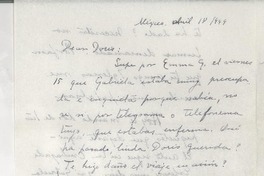 Migres. abril 18/949
Dear Doris:
Supe por Emma G. el viernes
15 que Gabriela estaba muy preocupa
da e inquieta porque sabía, no
sé si por telegrama o telefonema
tuyo, que estabas enferma. Qué
ha pasado, linda Doris querida?
Te hizo daño el viaje en avión?